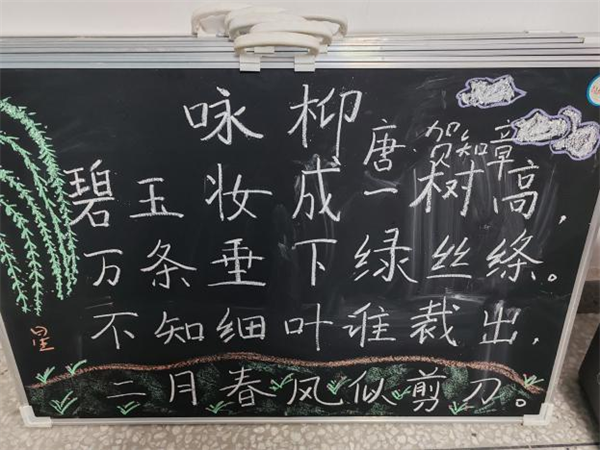 咏柳
唐 贺知章
碧玉妆成一树高，
万条垂下绿丝绦。
不知细叶谁裁出，
二月春风似剪刀。